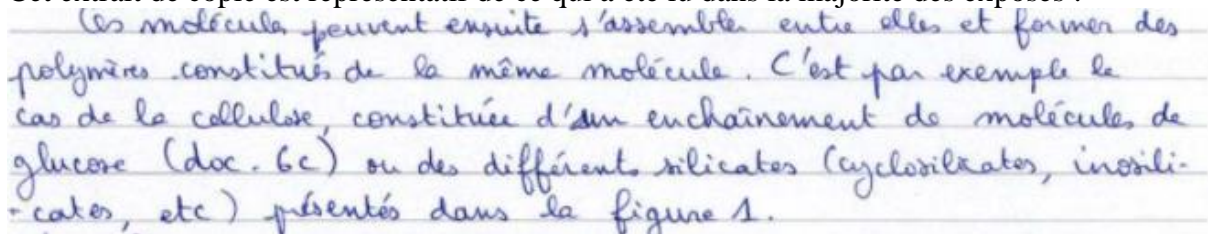 Cet extrait de copie est représentatif de ce qui a été lu dans la majorité des exposés :
Ces molécules peuvent ensuite s'assembler entre elles et former des
polymères constitués de la même molécule. C'est par exemple le
cas de la cellulose, constituée d'un enchaînement de molécules de
glucose (doc. 6c) ou des différents silicates (cyclosilicates, inosili-
-cates, etc) présentés dans la figure 1.